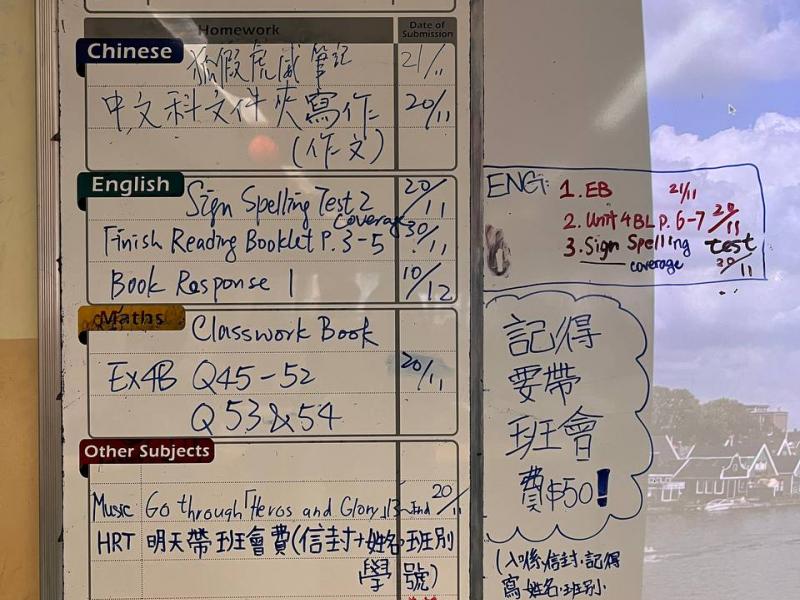 Homework
Date of Submission
Chinese
狐假虎威 筆記 21/11
中文科文件夾寫作 20/11
(作文)
English
Sign Spelling Test 2 20/11
coverage
Finish Reading Booklet P. 3-5 30/11
Book Response 1 10/12
Maths
Classwork Book
Ex4B Q45-52 20/11
Q 53 & 54
Other Subjects
Music Go through「Heros and Glory」13-End 20/11
HRT 明天帶班會費(信封+姓名·班別
學號)
ENG: 1. EB 21/11
2. Unit 4 BL P. 6-7 20/11
3. Sign Spelling test
coverage 20/11
記得
要帶
班會
費$50!
(入係信封·記得
寫姓名·班別·